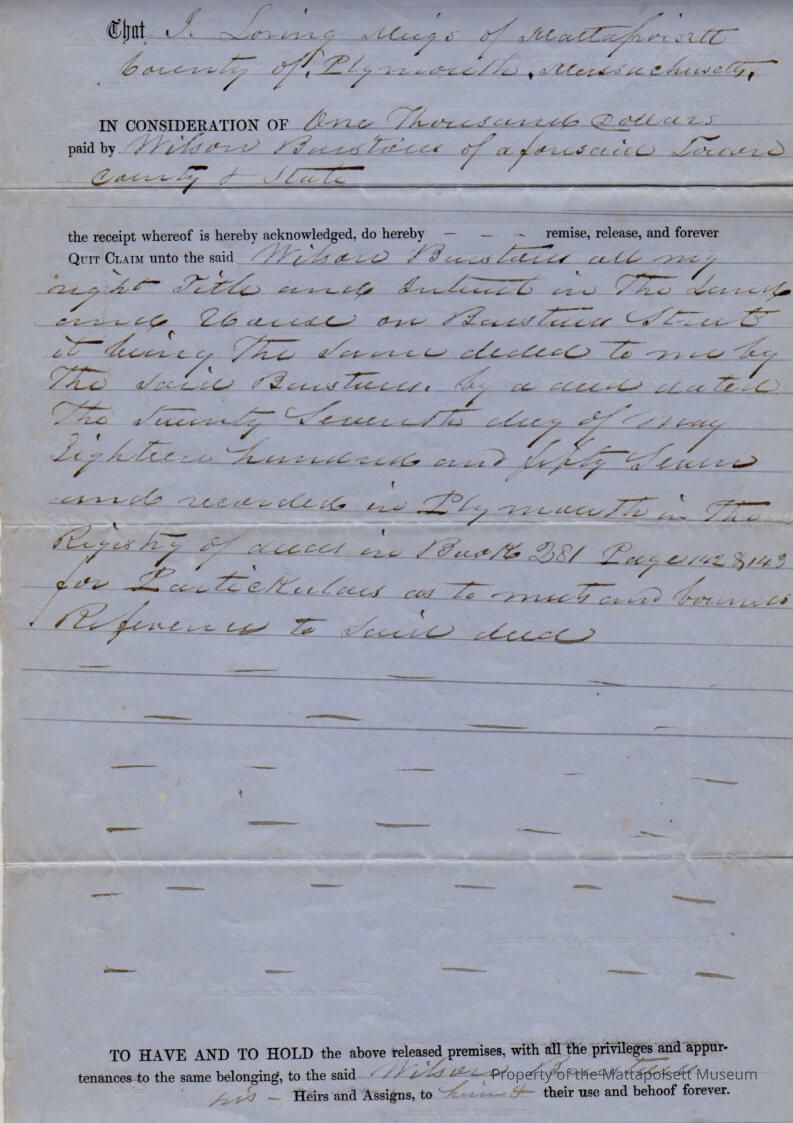 That I Loring Meigs of Mattapoisett
County of Plymouth, Massachusetts,
IN CONSIDERATION OF One Thousand Dollars
paid by Wilson Barstow of aforesaid Town
County & State
the receipt whereof is hereby acknowledged, do hereby - - - remise, release, and forever
QUIT CLAIM unto the said Wilson Barstow all my
right Title and Interest in The Land
and House on Barstow Street
it being The Same deded to me by
The Said Barstow. by a deed dated
The Twenty Seventh day of May
Eighteen hundred and fifty Seven
and recorded in Plymouth in The
Registry of deeds in Book 281 Page 142 & 143
for Partickulars as to meets and bounds
Reference to Said deed
TO HAVE AND TO HOLD the above released premises, with all the privileges and appur-
tenances to the same belonging, to the said Wilson Barstow
his - Heirs and Assigns, to him & their use and behoof forever.
Property of the Mattapoisett Museum